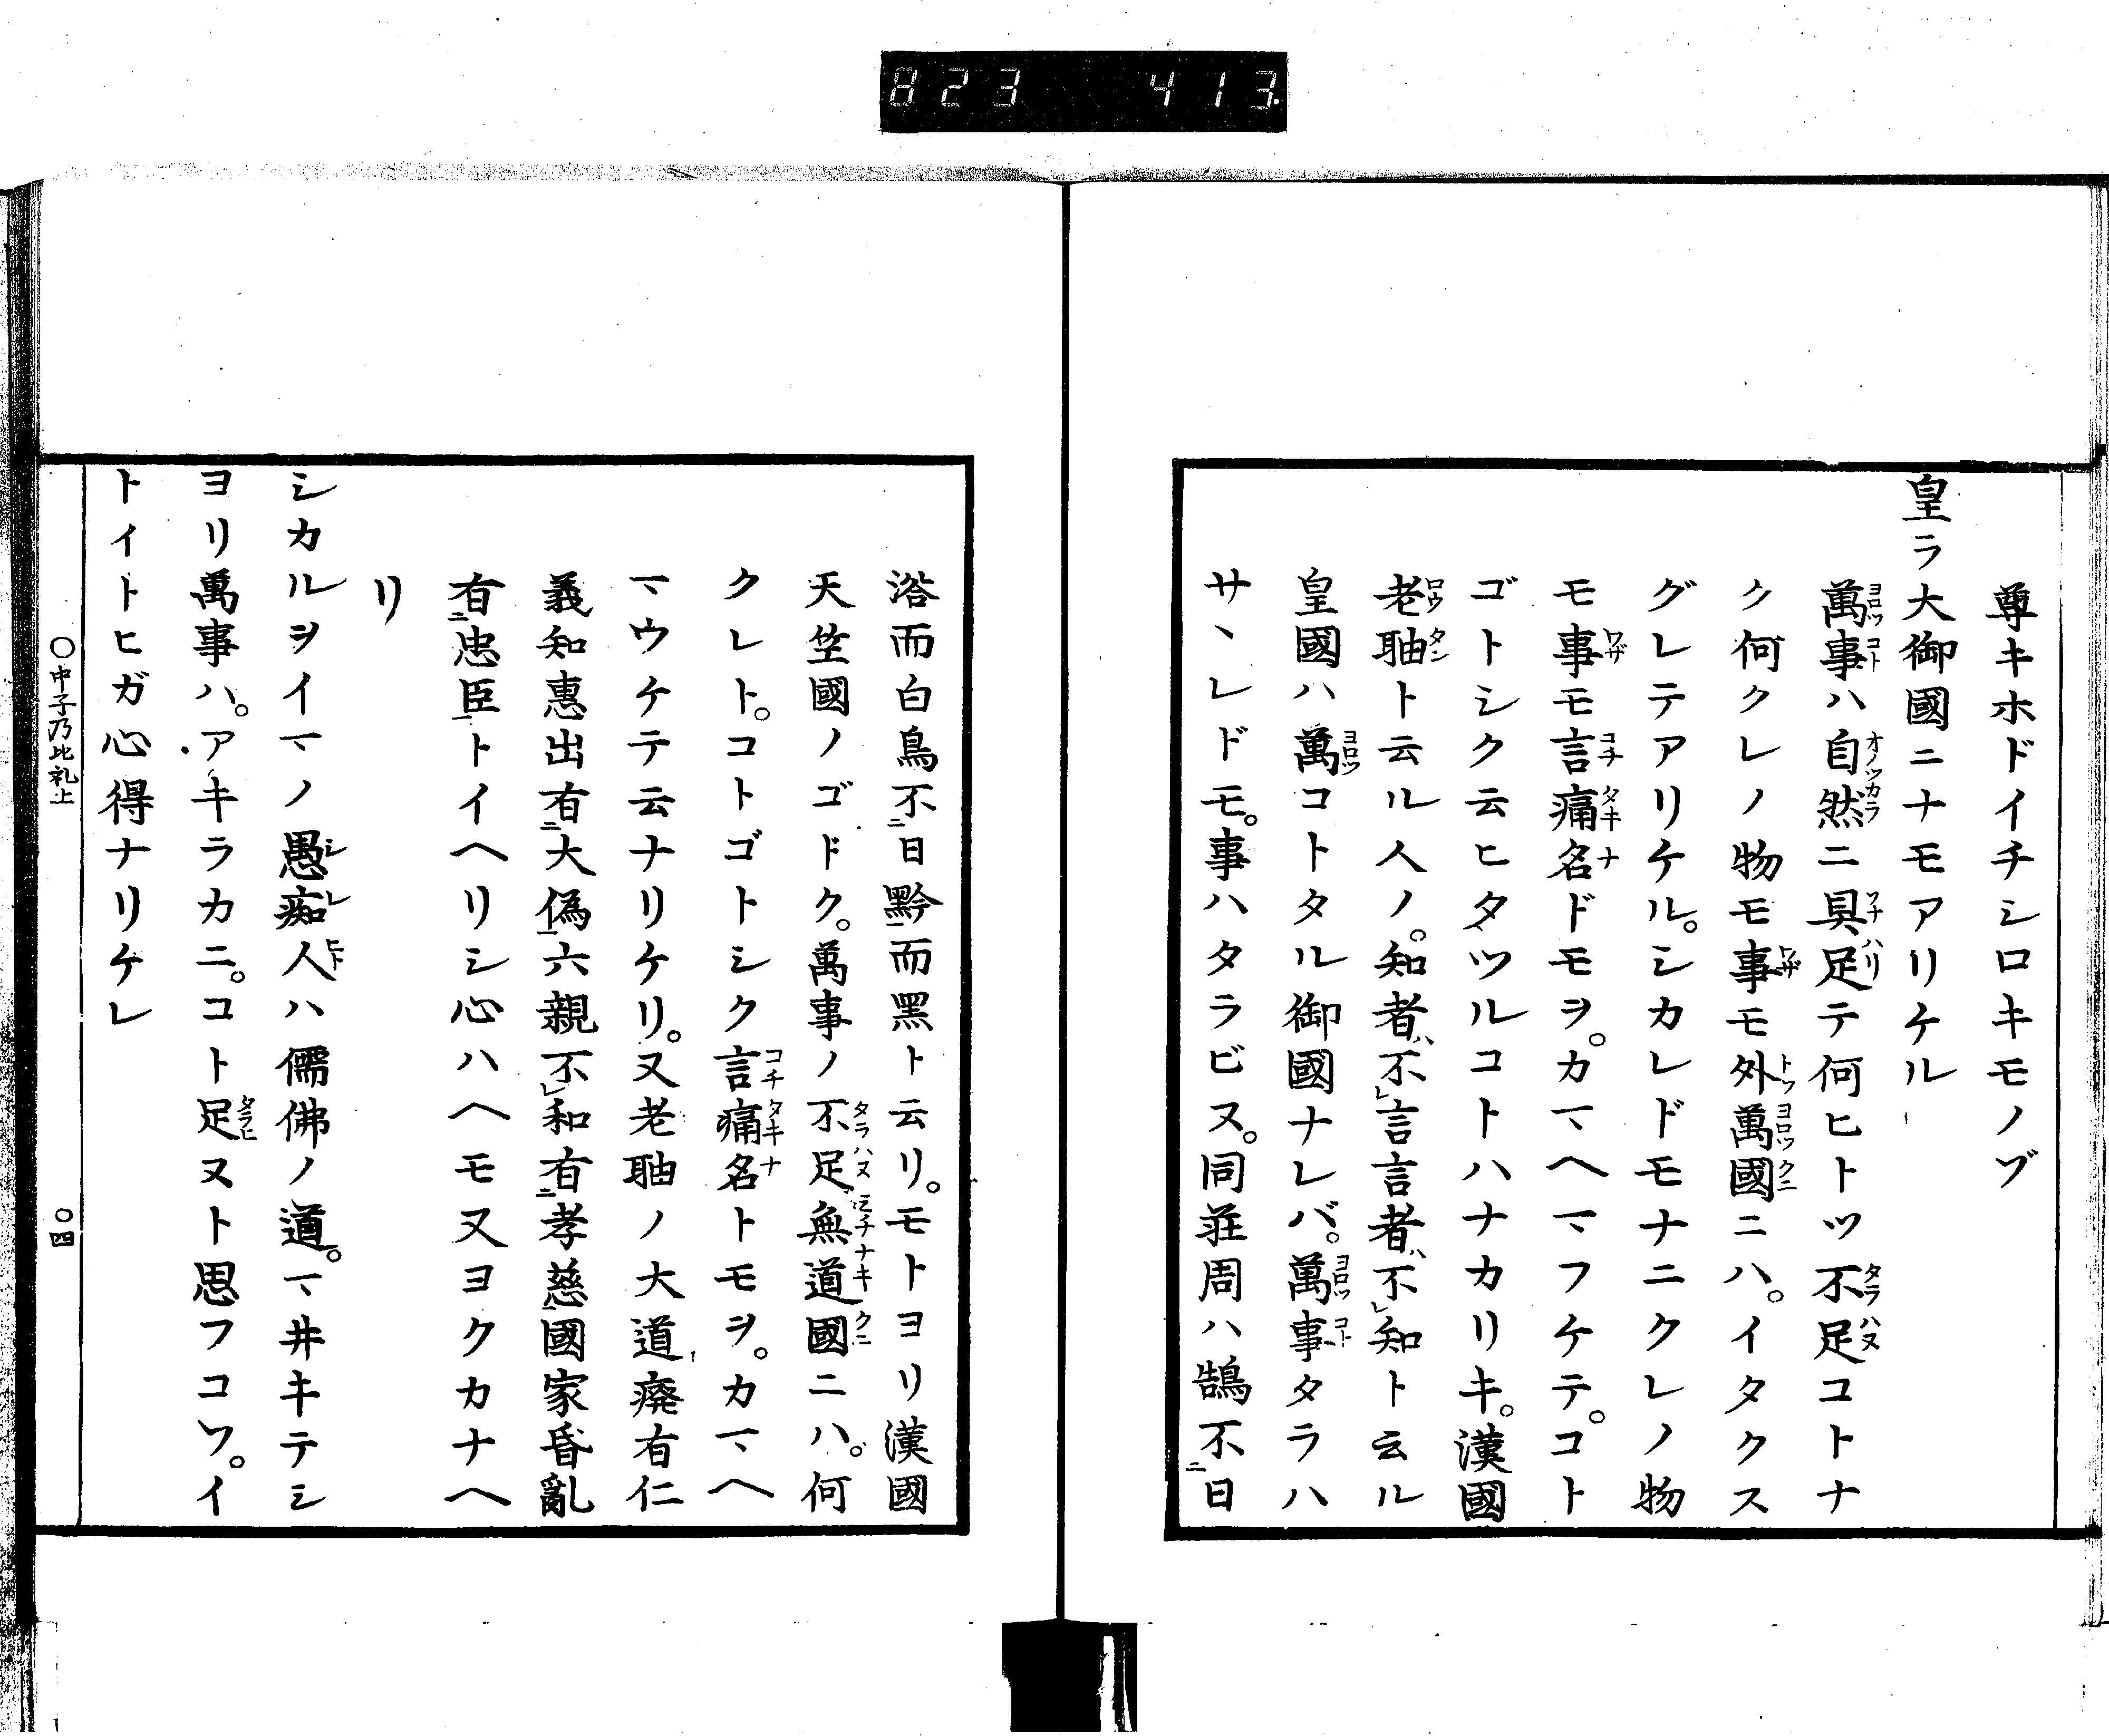 823 413.
尊キホドイチシロキモノゾ
皇ラ大御國ニナモアリケル
萬事ハ自然ニ具足テ何ヒトツ不足コトナ
ク何クレノ物モ事モ外萬國ニハ。イタクス
グレテアリケル。シカレドモナニクレノ物
モ事モ言痛名ドモヲ。カマヘマフケテ。コト
ゴトシク云ヒタツルコトハナカリキ。漢國
老聃ト云ル人ノ。知者ハ不レ言言者ハ不レ知ト云ル
皇國ハ萬コトタル御國ナレバ。萬事タラハ
サヽレドモ。事ハタラビヌ。同荘周ハ鵠不二日
浴而白烏不二日黔一而黑ト云リ。モトヨリ漢國
天竺國ノゴドク。萬事ノ不足無道國ニハ。何
クレト。コトゴトシク言痛名トモヲ。カマヘ
マウケテ云ナリケリ。又老聃ノ大道癈有仁
義知惠出有二大偽一六親不レ和有二孝慈一國家昏亂
有二忠臣一トイヘリシ心ハヘモ又ヨクカナヘ
リ
シカルヲイマノ愚痴人ハ儒佛ノ道。マ井キテシ
ヨリ萬事ハ。アキラカニ。コト足ヌト思フコソ。イ
トイトヒガ心得ナリケレ
○中子乃比礼上 ○四